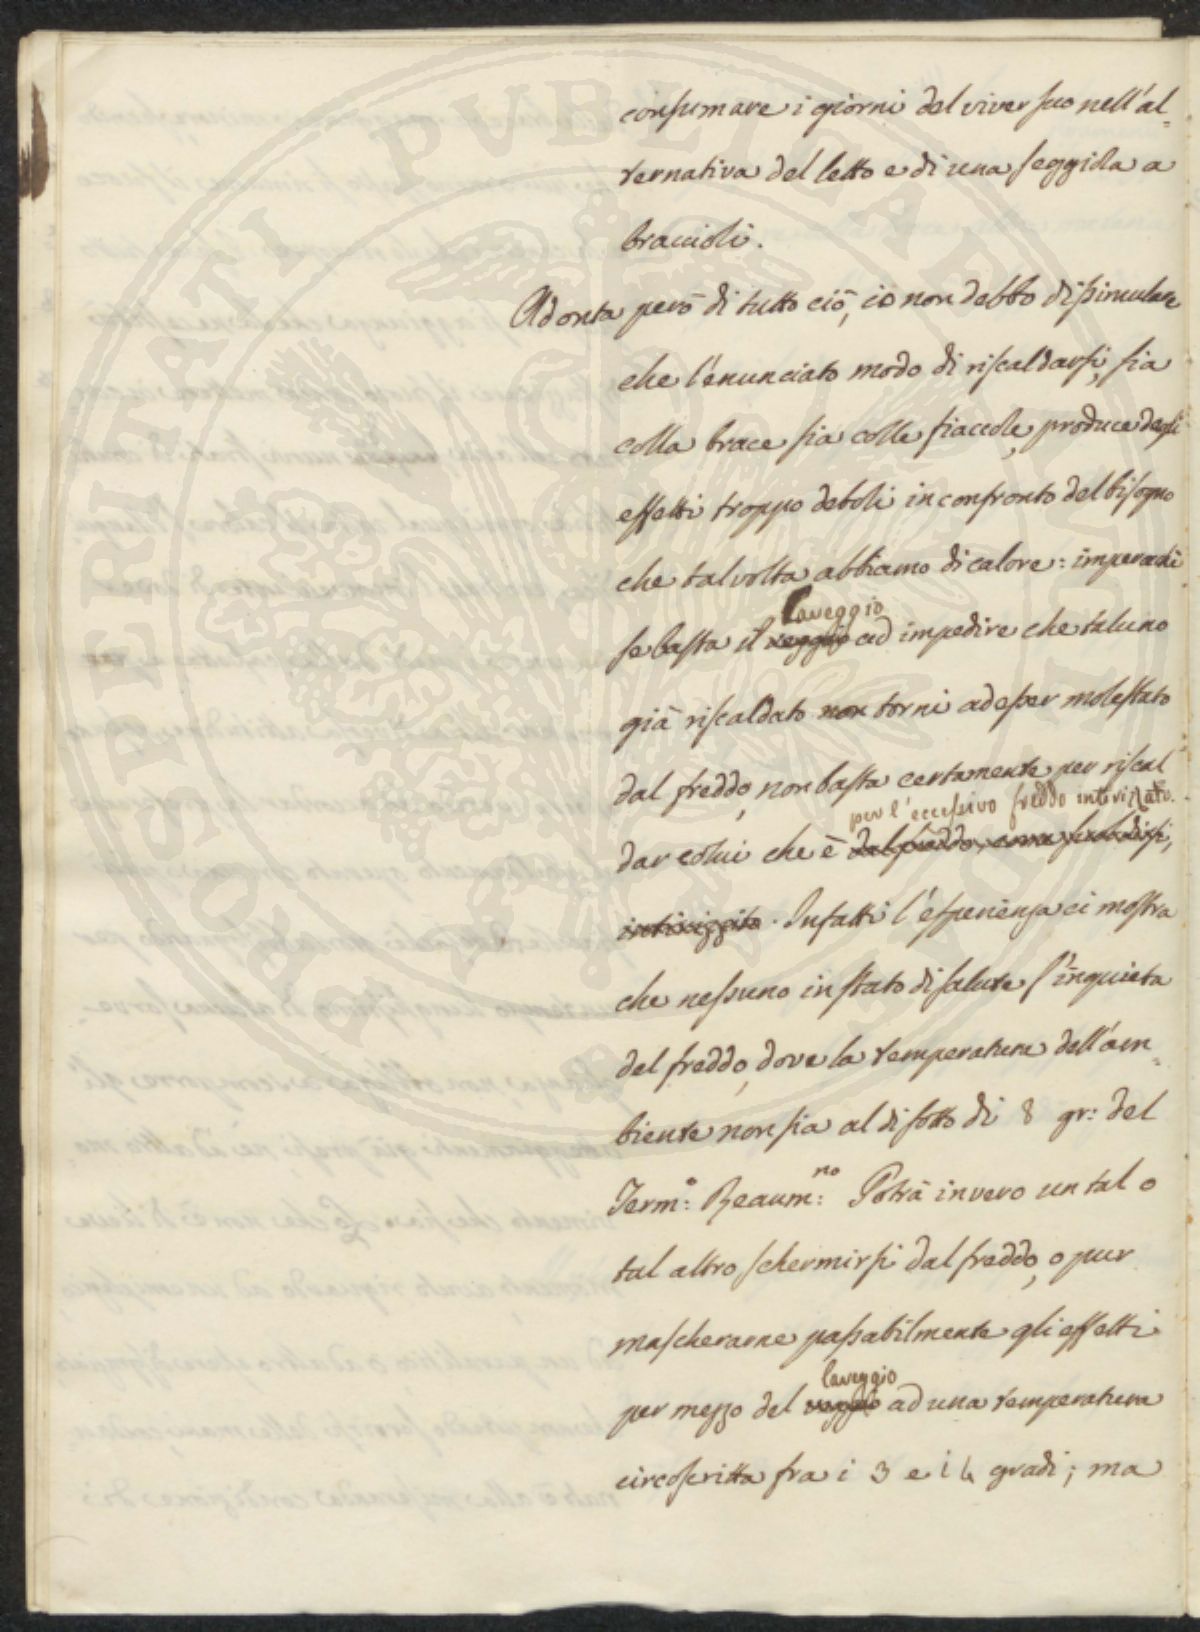 consumare i giorni del viver suo nell'al-
ternativa del letto e di una seggiola a
braccioli.
Ad onta però di tutto ciò, io non debbo dissimulare
che l'enunciato modo di riscaldarsi, sia
colla brace sia colle fiaccole, produce degli
effetti troppo deboli in confronto del bisogno
che talvolta abbiamo di calore: imperochè
laveggio
se basta il veggio ad impedire che taluno
già riscaldato non torni ad esser molestato
dal freddo, non basta certamente per riscal
per l'eccessivo freddo intirizzato.
dar colui che è dal freddo, come suol dirsi,
intirizzito. Infatti l'esperienza ci mostra
che nessuno in stato di salute s'inquieta
del freddo, dove la temperatura dell'am-
biente non sia al di sotto di 8 gr: del
Term.º: Reaum.no: Potrà invero un tal o
tal altro schermirsi dal freddo, o pur
mascherarne passabilmente gli effetti
laveggio
per mezzo del veggio ad una temperatura
circoscritta fra i 3 e i 4 gradi; ma
PROSPERITATI PUBLICAE